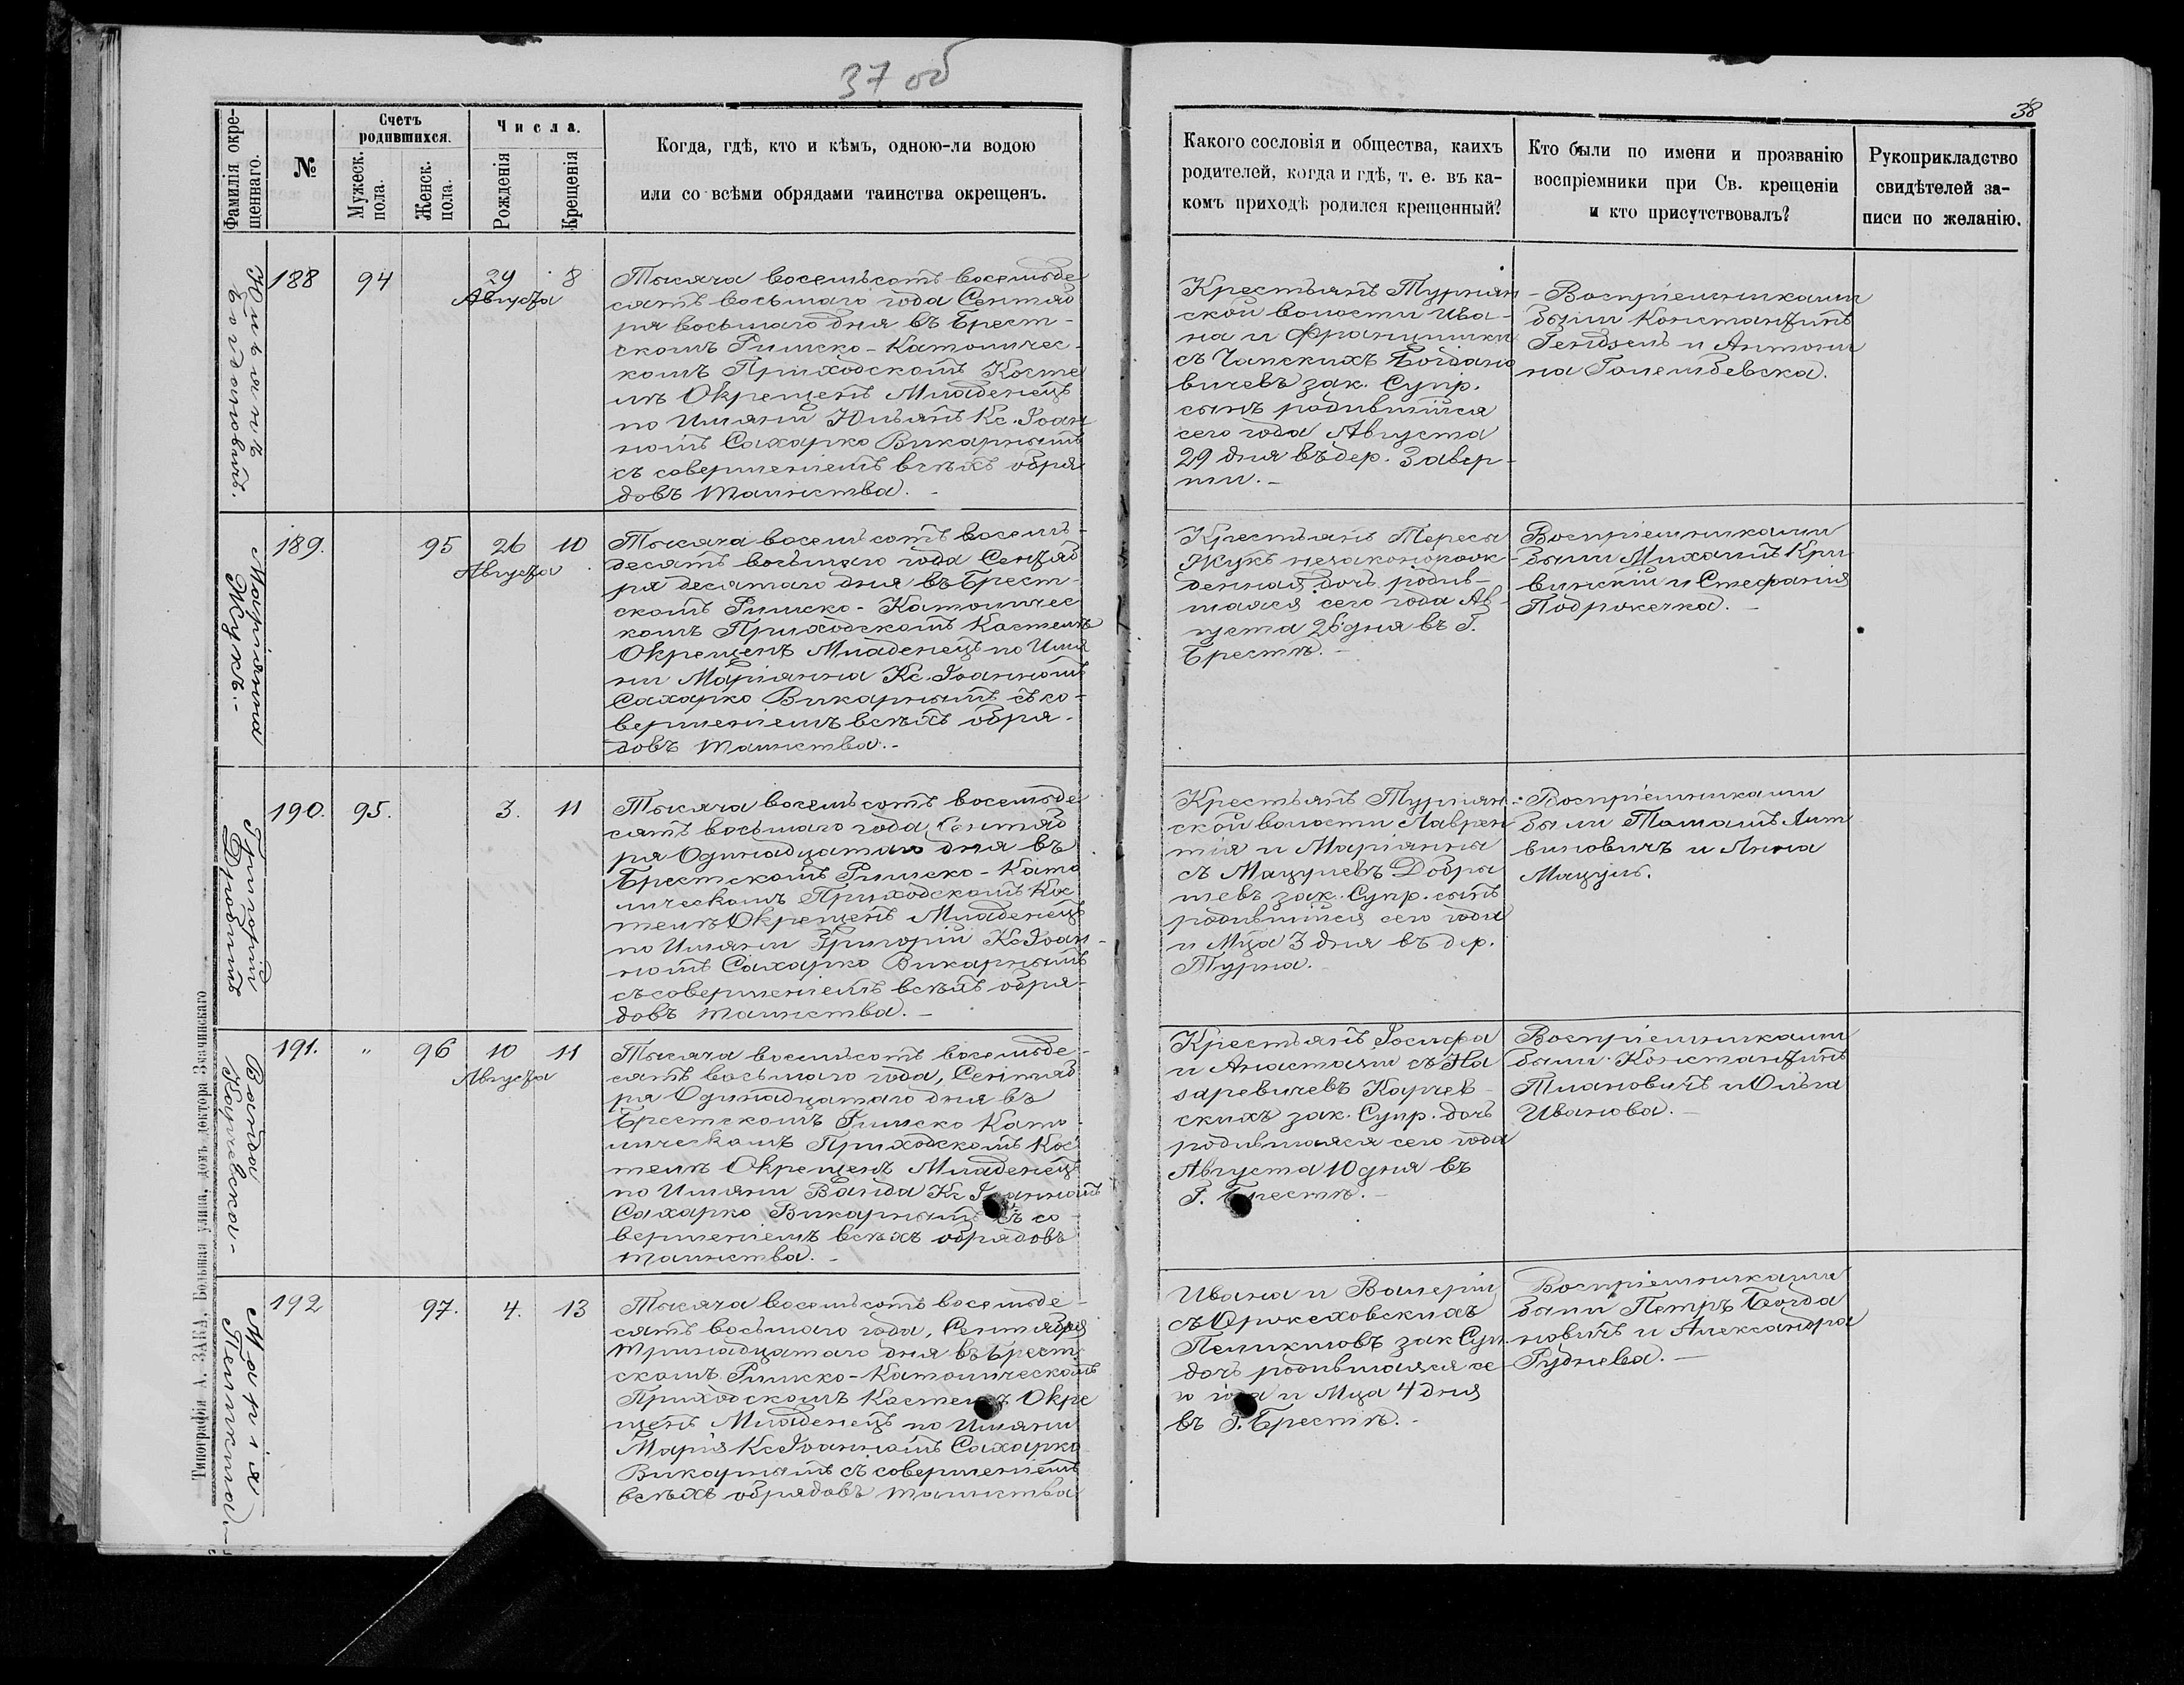 37 об
38
Фамилія окре-
щеннаго.
№
Счетъ
родившихся.
Мужеск.
пола.
Женск.
пола.
Числа.
Рожденія
Крещенія
Когда, гдѣ, кто и кѣмъ, одною-ли водою
или со всѣми обрядами таинства окрещенъ.
Какого сословія и общества, каихъ
родителей, когда и гдѣ, т. е. въ ка-
комъ приходѣ родился крещенный?
Кто были по имени и прозванію
воспріемники при Св. крещеніи
и кто присутствовалъ?
Рукоприкладство
свидѣтелей за-
писи по желанію.
Юльянъ
Богдановичъ.
188
94
29
Августа
8
Тысяча восемьсотъ восемьде
сятъ восьмаго года Сентяб
ря восьмаго дня въ Брест-
скомъ Римско-Католичес-
комъ Приходскомъ Косте
лѣ Окрещенъ Младенецъ
по Имяни Юльянъ Кс. Іоан
номъ Сахарко Викарнымъ
съ совершеніемъ всѣхъ обря
довъ таинства.-
Крестьянъ Турнян
ской волости Ива-
на и Францишки
съ Чапскихъ Богдано
вичевъ зак. Супр.
сынъ родившійся
сего года Августа
29 дня въ дер. Завер-
ши.-
- Воспріемниками
были Константинъ
Гендзель и Антони
на Голембевска.
Маріянна
Жукъ.-
189.
95
26
Августа
10
Тысяча восемьсотъ восемь-
десятъ восьмаго года Сентяб
ря десятаго дня въ Брест-
скомъ Римско-Католичес
комъ Приходскомъ Костелѣ
Окрещенъ Младенецъ по Имя
ни Маріянна Кс. Іоанномъ
Сахарко Викарнымъ съ со-
вершеніемъ всѣхъ обря-
довъ таинства.-
Крестьянъ Тересы
Жукъ незаконорож-
денная дочь родив-
шаяся сего года Ав-
густа 26 дня въ Г.
Брестѣ.-
Воспріемниками
были Михаилъ Кри
винскій и Стефанія
Подрожечка.-
Григорій
190.
95.
3.
11
Тысяча восемьсотъ восемьде
сятъ восьмаго года Сентяб
ря Одинадцатаго дня въ
Брестскомъ Римско-Като
лическомъ Приходскомъ Кос
телѣ Окрещенъ Младенецъ
по Имяни Григорій Кс Іоан-
номъ Сахарко Викарнымъ
съ совершеніемъ всѣхъ обря-
довъ таинства.-
Крестьянъ Турнян-
ской волости Лаврен
тія и Маріянны
съ Мацулевъ Добры
шевъ зак. Супр. сынъ
родившійся сего года
и Мца 3 дня въ дер.
Турна.
: Воспріемниками
были Томашъ Лит
виновичъ и Анна
Мацуль.
Ванда
Корчевска.-
191.
"
96
10
Августа
11
Тысяча восемьсотъ восемьде-
сятъ восьмаго года, Сентяб
ря Одинадцатаго дня въ
Брестскомъ Римско Като-
лическомъ Приходскомъ Кос
телѣ Окрещенъ Младенецъ
по Имяни Ванда Кс Іоанномъ
Сахарко Викарнымъ съ со-
вершеніемъ всѣхъ обрядовъ
таинства.-
Крестьянъ Іосифа
и Анастазіи съ На
заревичевъ Корчев-
скихъ зак. Супр. дочь
родившаяся сего года
Августа 10 дня въ
Г. Брестѣ.-
Воспріемниками
были Константинъ
Тлановичъ и Ольга
Иванова.-
Марія
192
97.
4.
13
Тысяча восемьсотъ восемьде-
сятъ восьмаго года, Сентября
тринадцатаго дня въ Брест-
скомъ Римско-Католическомъ
Приходскомъ Костелѣ Окре
щенъ Младенецъ по Имяни
Марія Кс Іоанномъ Сахарко
Викарнымъ съ совершеніемъ
всѣхъ обрядовъ таинства
Ивана и Валеріи
съ Оржеховскихъ
зак Супр.
дочь родившаяся се-
го года и Мца 4 дня
въ Г. Брестѣ.-
Воспріемниками
были Петръ Богда
новичъ и Александра
Руднева.-
Типографія А. ЗАКА, Большая улица, домъ доктора Значинскаго